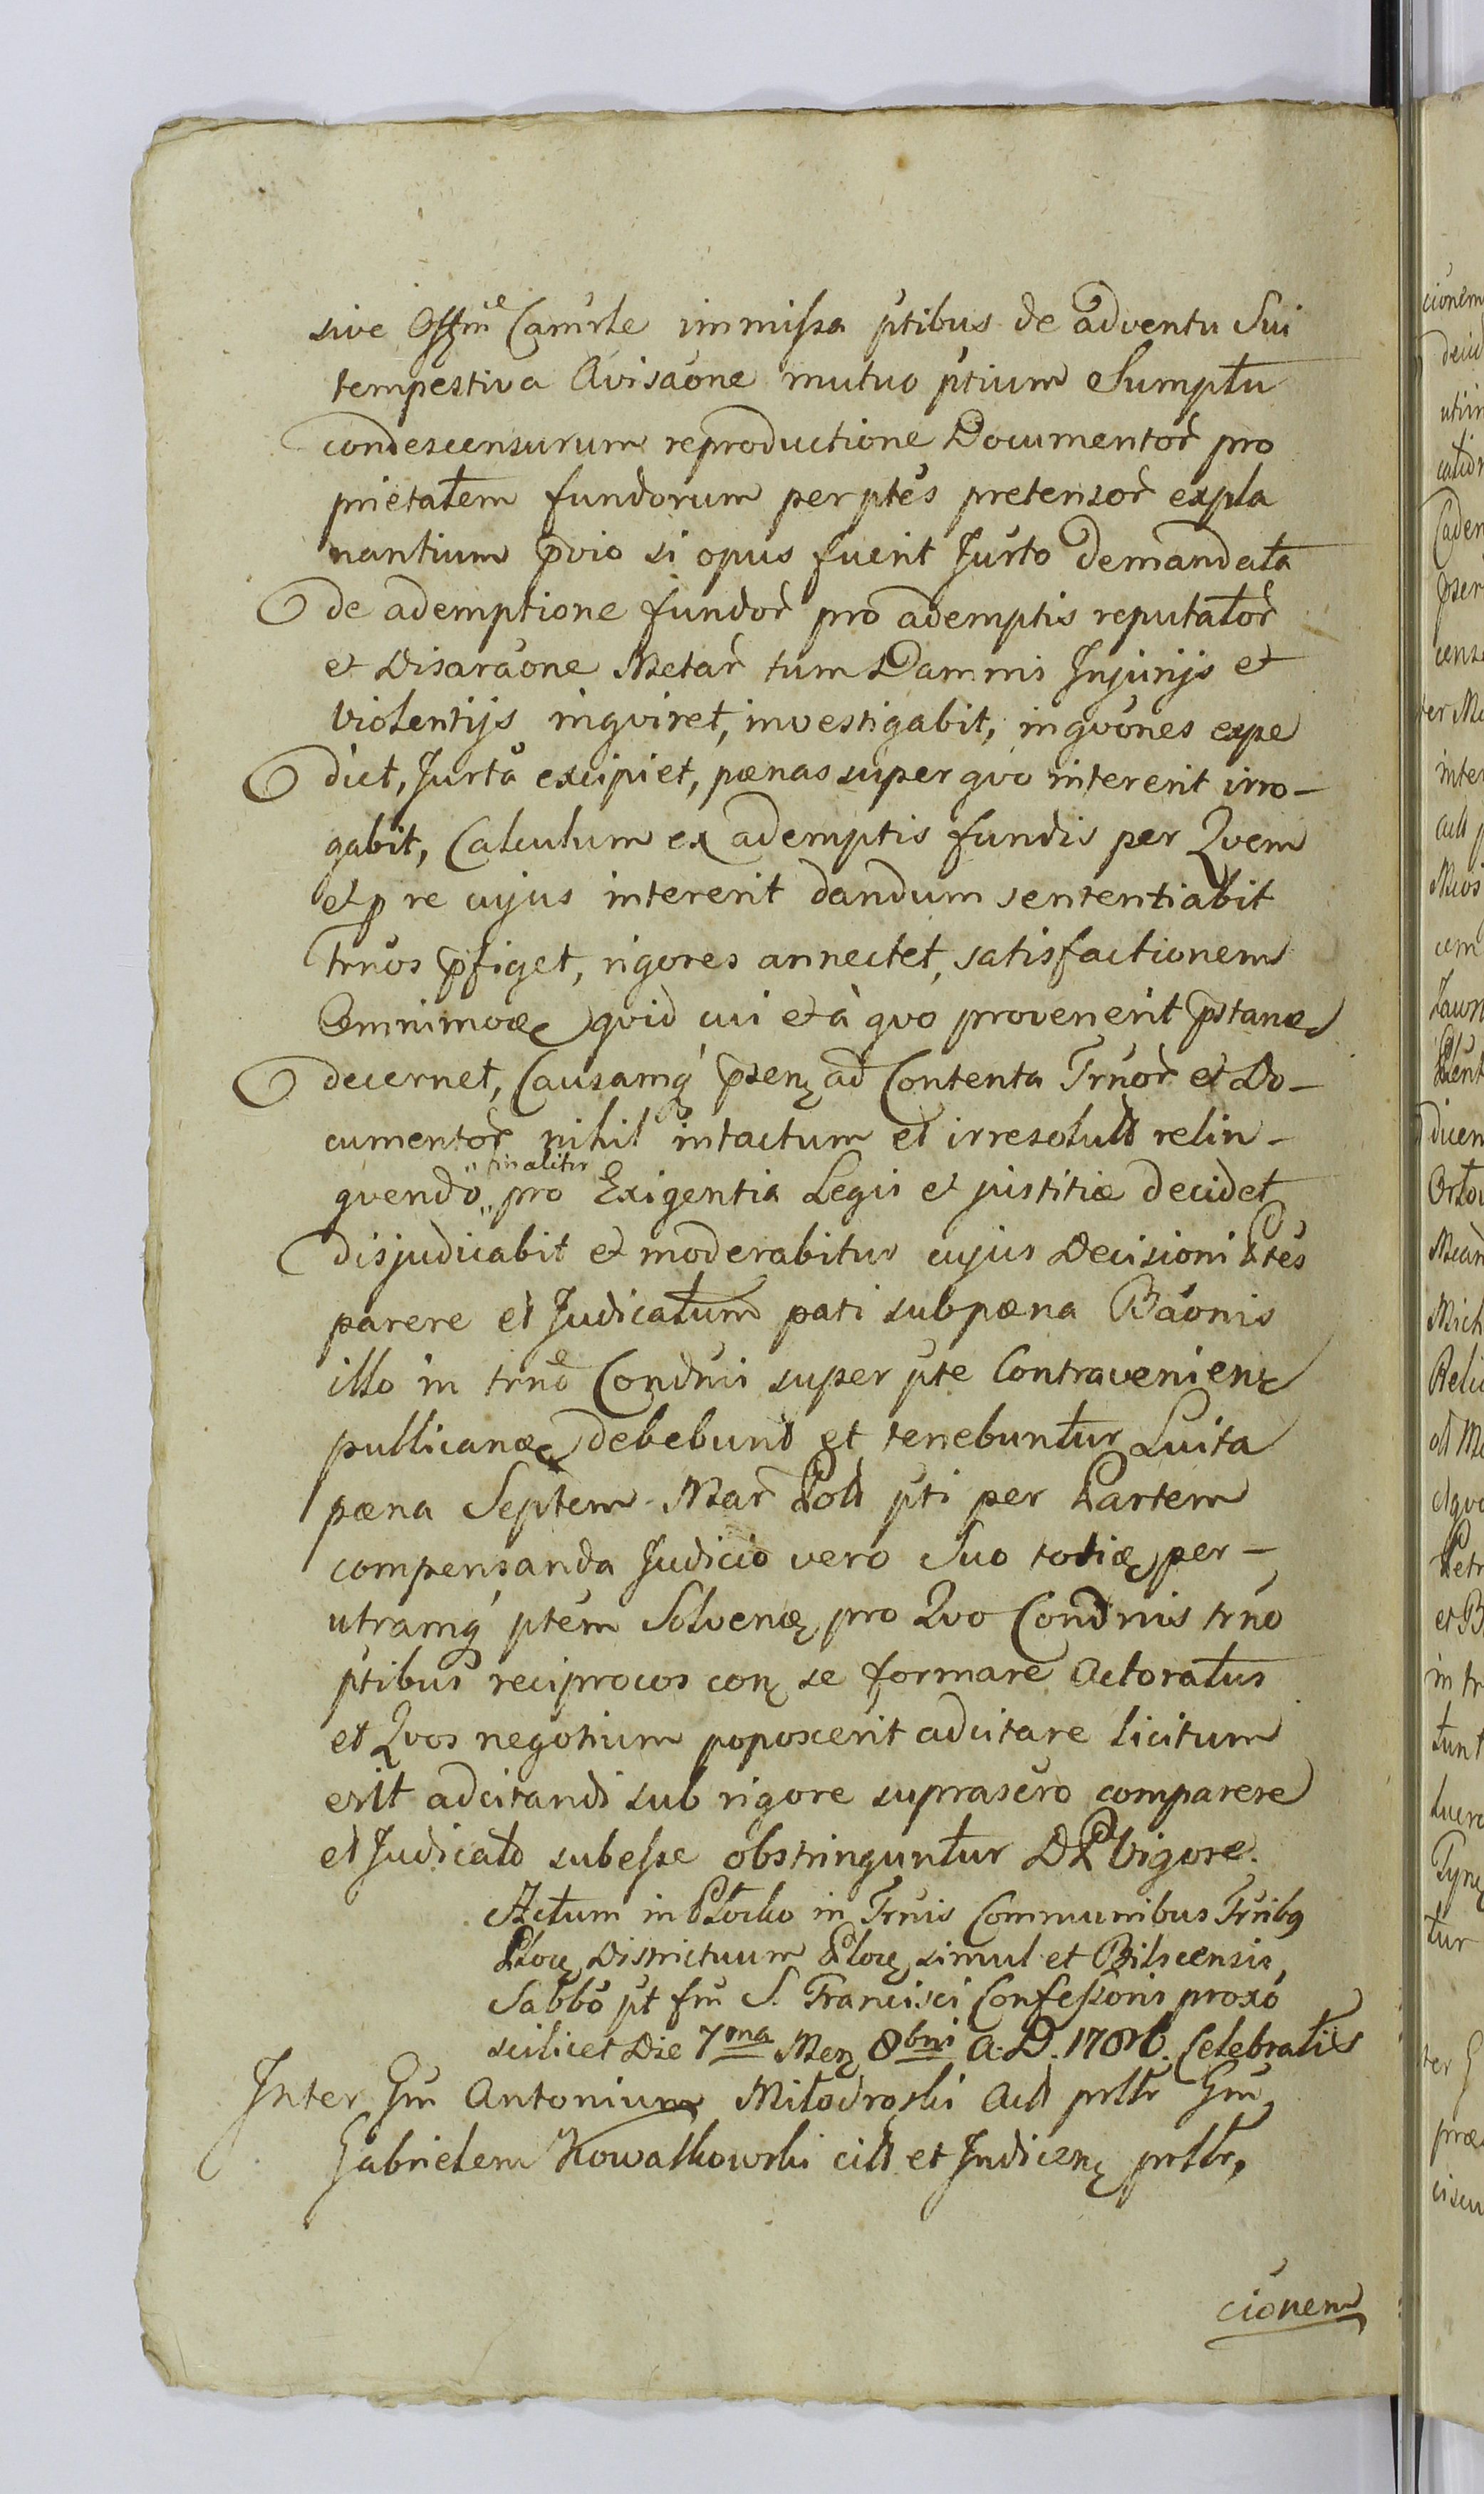 sive Offm̃e Camrle immissa ptibus de adventu Sui
tempestiva Avisaõne mutuo ptium Sumptu
condescensurum reproductione Documentor̃ pro
prietatem fundorum per ptẽs pretensor̃ expla
nantium pvio si opus fuerit Jurto demandata
de ademptione fundor̃ pro ademptis reputator̃
et Disaraõne Metar̃ tum Damnis Injurijs et
Violentijs inqviret, investigabit, inqvõnes expe
diet, Jurta excipiet, pænas super qvo intererit irro-
gabit, Calculum ex ademptis fundis per Qvem
et p re cujus intererit dandum sententiabit
trnos pfiget, rigores annectet, satisfactionem
Omnimodæ qvid cui et à qvo provenerit pstanæ
decernet, Causamq́ psenz ad Contenta Trnor̃ et Do-
cumentor̃ nihil intactum et irresolutt relin-
qvendo finaliter pro Exigentia Legis et justitiæ decidet
disjudicabit et moderabitur cujus Decisioni Ptẽs
parere et Judicatum pati sub pæna Baõnis
illo in trno Condnii super pte Contravenienz
pullicanæ debebunt et tenebuntur Luita
pæna Septem Mar̃ Poll pti per Partem
compensanda Judicio vero Suo totiæ per-
utramq́ ptẽm Solvenæ pro Qvo Condnis trno
ptibus reciprocos conz se formare Actoratus
et Qvos negotium poposcerit adcitare licitum
erit adcitandi sub rigore suprascro comparere
et Judicato subesse obstringuntur DP Vigore.
Actum in Plocko in Trnis Communibus Trribq
Plocz Districtuum Plocz simul et Bilscensis,
Sabbõ pt fm S. Francisci Confessoris proxõ
scilicet Die 7ma Menz 8bri A. D. 1786. Celebratis
Inter Gm Antonium Miłodroski Act prltr Gm
Gabrielem Kowalkowski citt et Judicenz prltr,
cionem